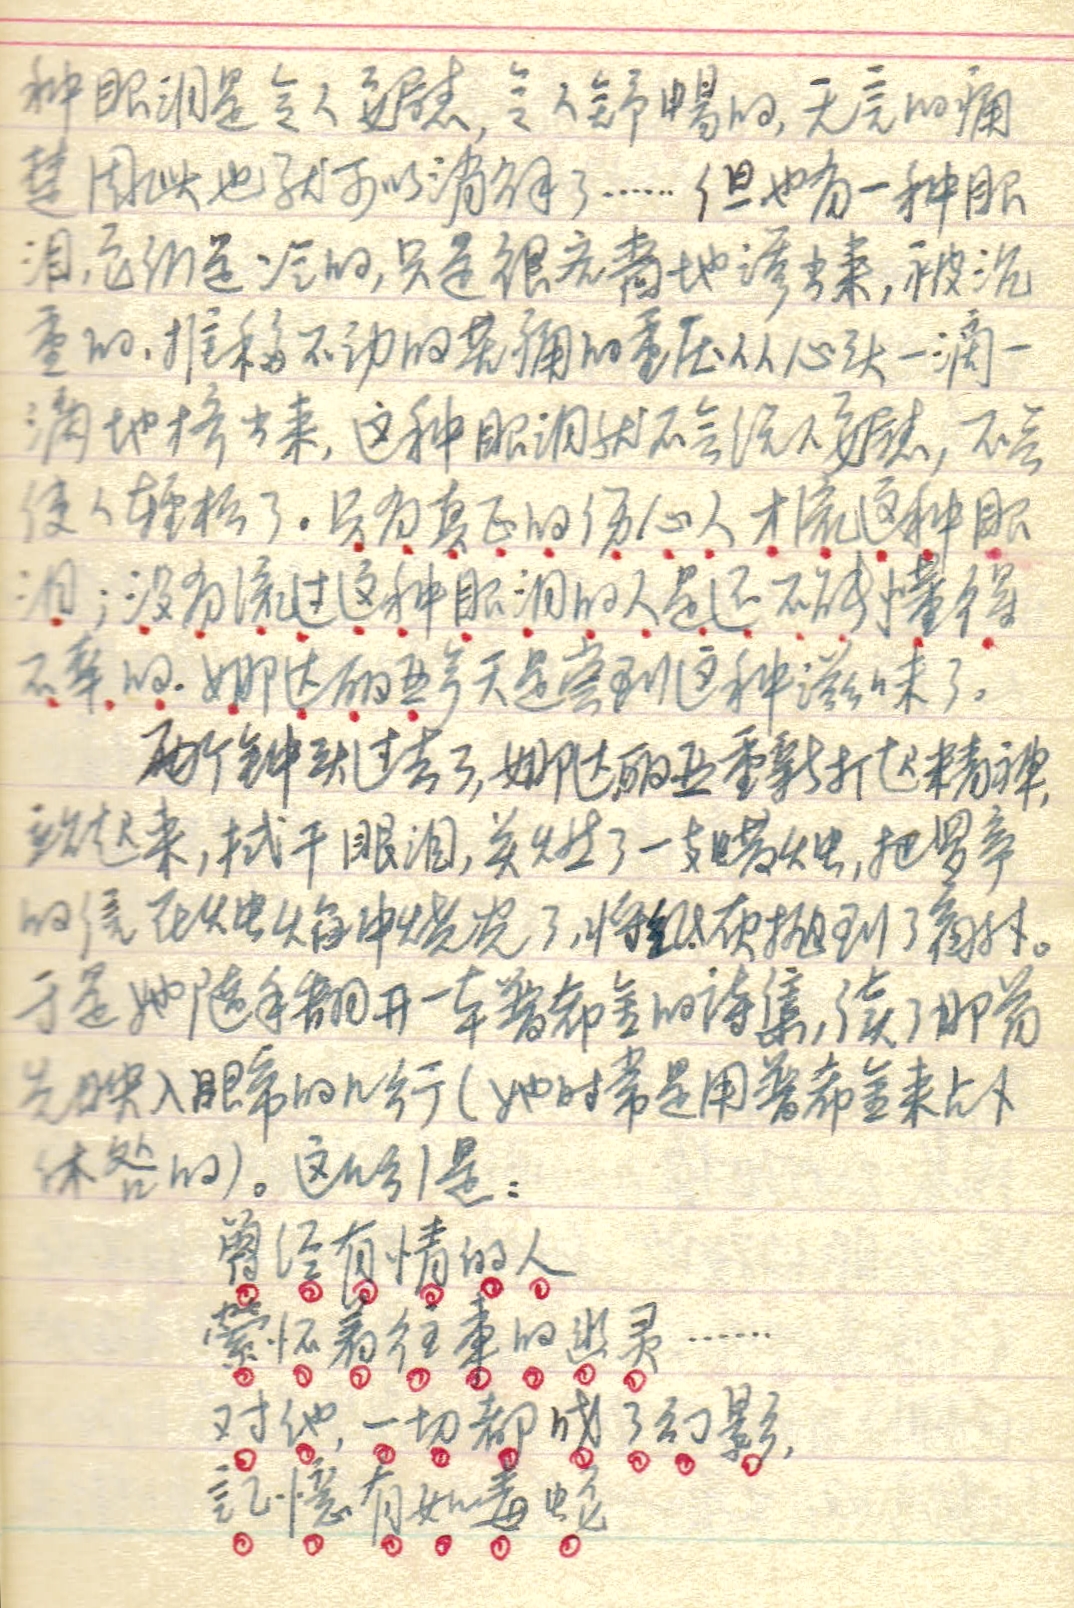 种眼泪是令人安慰,令人舒畅的,无言的痛
楚因此也就可以消解了……但也有一种眼
泪,它们是冷的,只是很吝啬地淌出来,被沉
重的、推移不动的苦痛的重压从心头一滴一
滴地挤出来,这种眼泪就不会给人安慰,不会
使人轻松了。只有真正的伤心人才流这种眼
泪;没有流过这种眼泪的人是还不能懂得
不幸的。娜达丽亚今天是尝到这种滋味了。
两个钟头过去了,娜达丽亚重新打起精神,
站起来,拭干眼泪,点燃了一支蜡烛,把罗亭
的信在烛焰中烧完了,将纸灰抛到了窗外。
于是她随手翻开一本普希金的诗集,读了那首
先映入眼帘的几行(她时常是用普希金来占卜
休咎的)。这几行是:
曾经有情的人
萦怀着往事的幽灵……
对他,一切都成了幻影,
记忆有如毒蛇